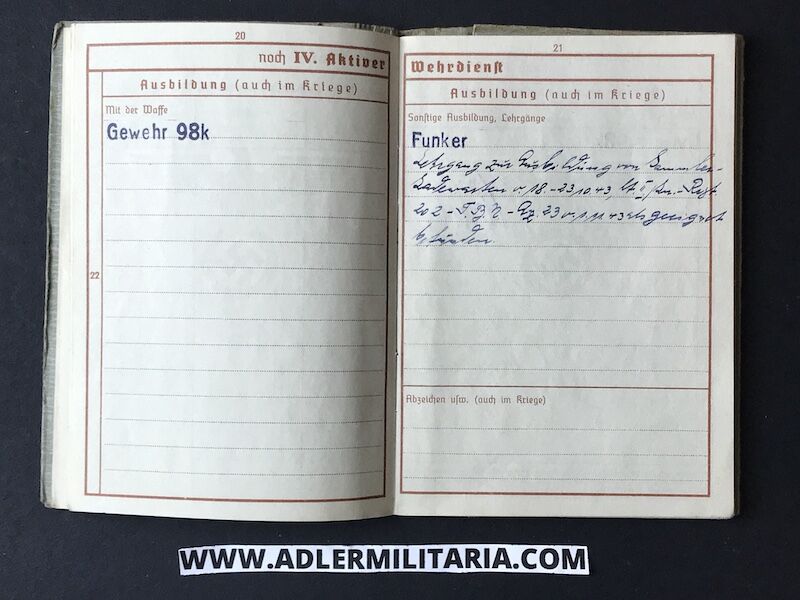 20
noch IV. Aktiver
Ausbildung (auch im Kriege)
Mit der Waffe
Gewehr 98k
22
21
Wehrdienst
Ausbildung (auch im Kriege)
Sonstige Ausbildung, Lehrgänge
Funker
Lehrgang zur Ausbildung von Sammler-
ladewarten v. 18.-23.10.43
202 - als geeignet
befunden.
Abzeichen usw. (auch im Kriege)
WWW.ADLERMILITARIA.COM